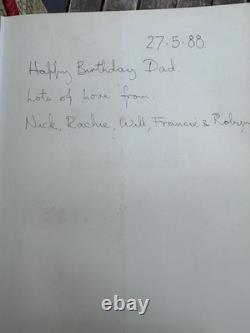 27·5·88.
Happy Birthday Dad.
Lots of Love from:
Nick, Rachie, Will, Francie & Robyn
ebay